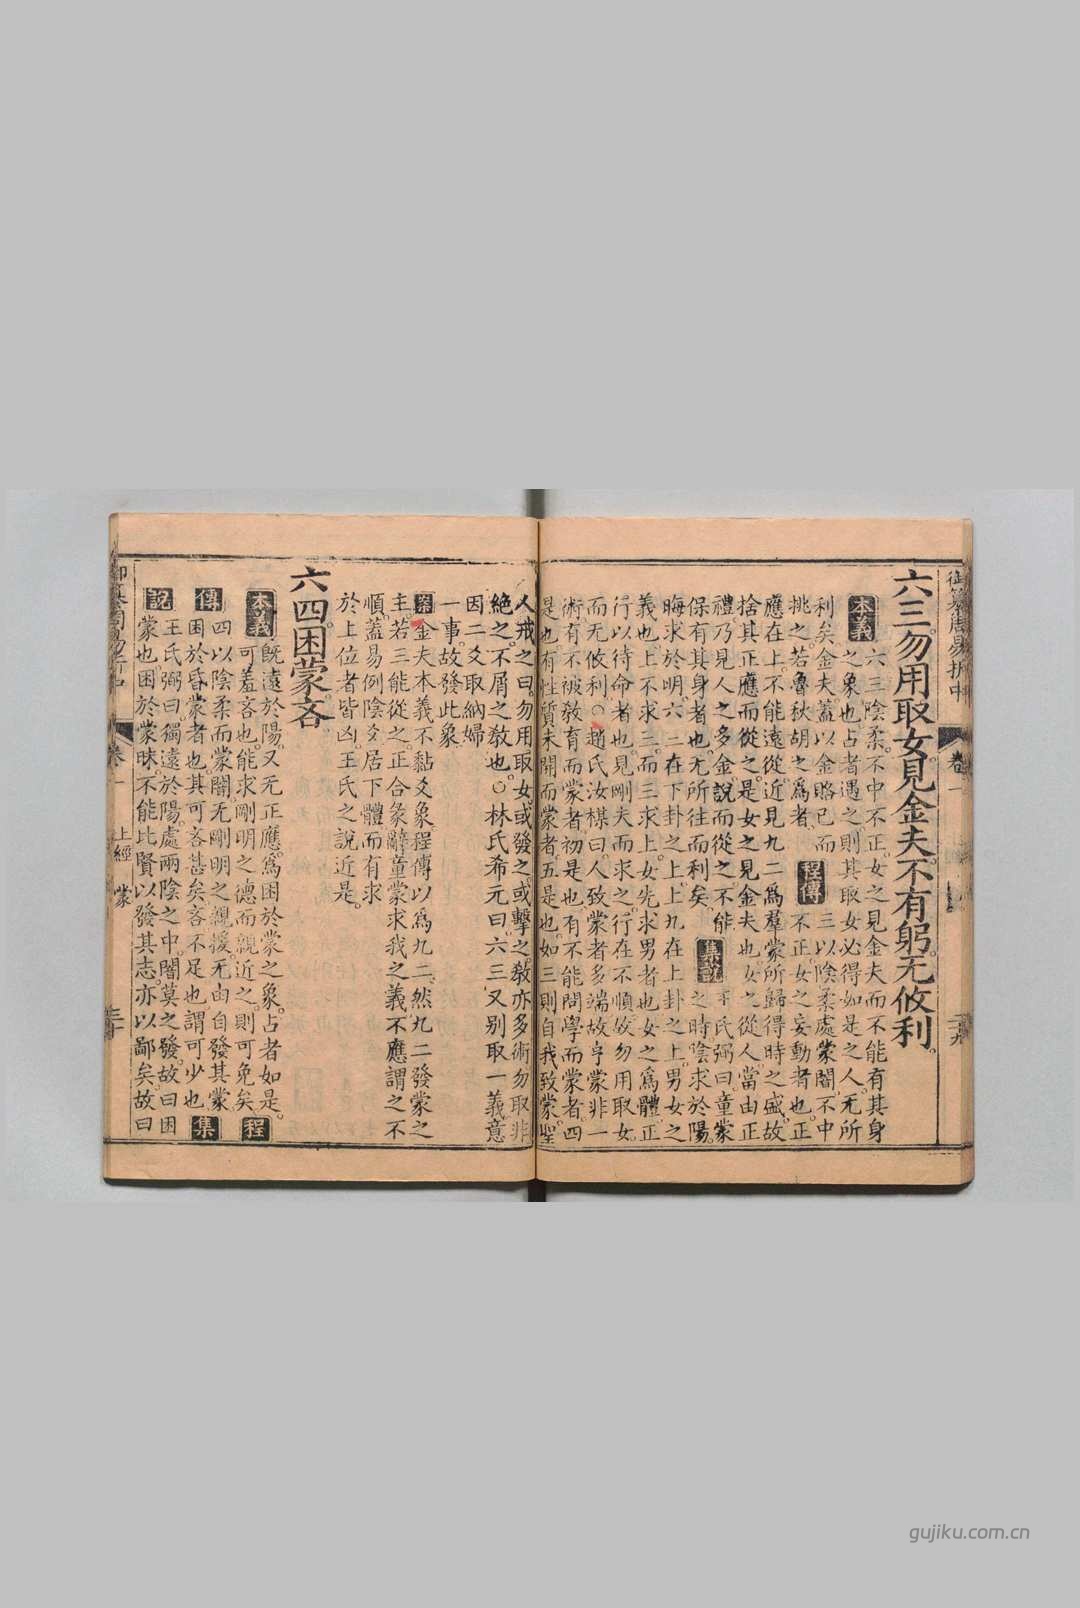 御纂周易折中 卷一 二十九
六三勿用取女見金夫不有躬无攸利。
本義 六三陰柔。不中不正。女之見金夫而不能有其身
之象也。占者遇之。則其取女必得如是之人。无所
利矣。金夫蓋以金賂已而 三以陰柔處蒙闇。不中
挑之。若魯秋胡之爲者。 程傳 不正。女之妄動者也。正
應在上。不能遠從。近見九二爲羣蒙所歸。得時之盛。故
捨其正應而從之。是女之見金夫也。女之從人。當由正
禮。乃見人之多金。說而從之。不能 集說 王氏弼曰。童蒙
保有其身者也。无所往而利矣。 之時。陰求於陽。
晦求於明。六三在下卦之上。上九在上卦之上。男女之
義也。上不求三。而三求上。女先求男者也。女之爲體。正
行以待命者也。見剛夫而求之。行在不順。故勿用取女。
而无攸利。○趙氏汝楳曰。人致蒙者多端。故亨蒙非一
術。有不被教育而蒙者。初是也。有不能問學而蒙者。四
是也。有性質未開而蒙者。五是也。如三則自我致蒙。聖
人戒之曰。勿用取女。或發之。或擊之。教亦多術。勿取。非
絕之。不屑之教也。○林氏希元曰。六三又别取一義。意
因二爻取納婦
一事。故發此象。
案 金夫本義不黏爻象。程傳以爲九二。然九二發蒙之
主。若三能從之。正合彖辭童蒙求我之義。不應謂之不
順。蓋易例陰爻居下體。而有求
於上位者皆凶。王氏之說近是。
六四。困蒙吝。
本義 既遠於陽。又无正應。爲困於蒙之象。占者如是。
可羞吝也。能求剛明之德而親近之。則可免矣。 程
傳 四以陰柔而蒙闇。无剛明之親援。无由自發其蒙。
困於昏蒙者也。其可吝甚矣。吝不足也。謂可少也。 集
說 王氏弼曰。獨遠於陽。處兩陰之中。闇莫之發。故曰困
蒙也。困於蒙昧。不能比賢以發其志。亦以鄙矣。故曰
御纂周易折中 卷一 上經 蒙 三十
gujiku.com.cn